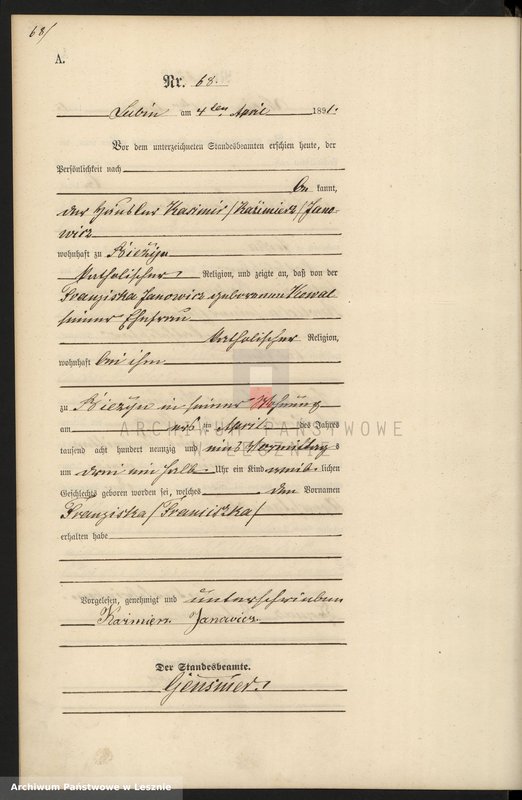 68/
A.
Nr. 68.
Lubin am 4ten April 1891.
Vor dem unterzeichneten Standesbeamten erschien heute, der
Persönlichkeit nach
be kannt,
der Häusler Kasimir /Kaźimierz/ Jano-
wicz
wohnhaft zu Bieżyn
katholischer Religion, und zeigte an, daß von der
Franziska Janowicz geborenen Kowal
seiner Ehefrau
katholischer Religion,
wohnhaft bei ihm
zu Bieżyn in seiner Wohnung
am ersten April des Jahres
tausend acht hundert neunzig und eins Vormittags
um drei ein halb Uhr ein Kind weib lichen
Geschlechts geboren worden sei, welches den Vornamen
Franziska /Franciszka/
erhalten habe
Vorgelesen, genehmigt und unterschrieben
Kazimierz Janowicz
Der Standesbeamte.
Gensmer.
ARCHIWUM PAŃSTWOWE
Archiwum Państwowe w Lesznie